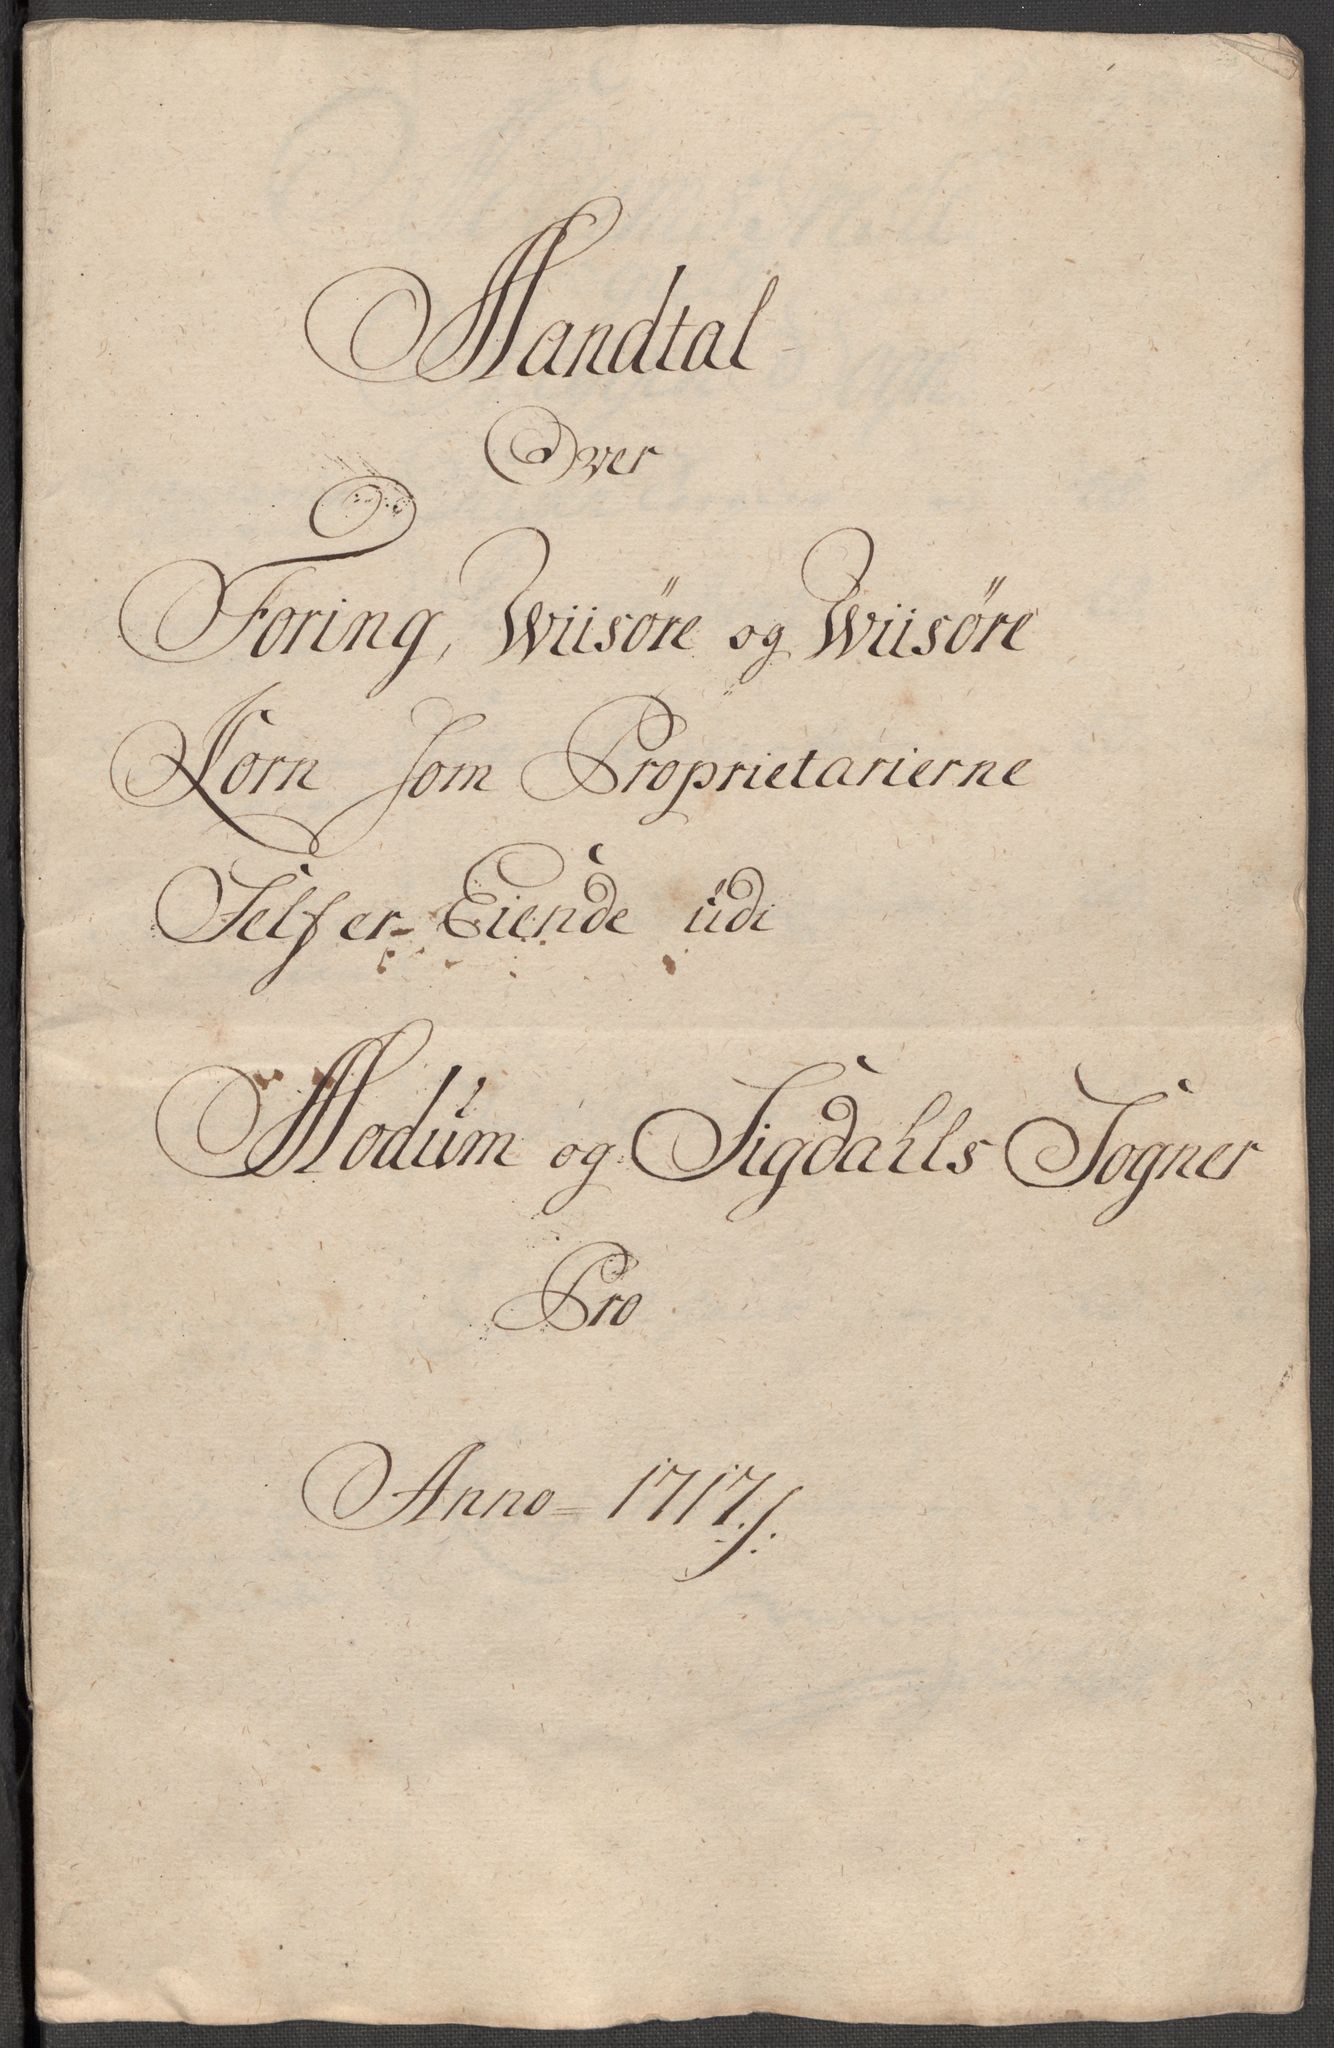 Mandtal
Over
Foring, Wiisøre og Wiisøre
Korn som Proprietarierne
Selfer Eiende udi
Modum og Sigdahls Sogner
Pro
Anno 1717